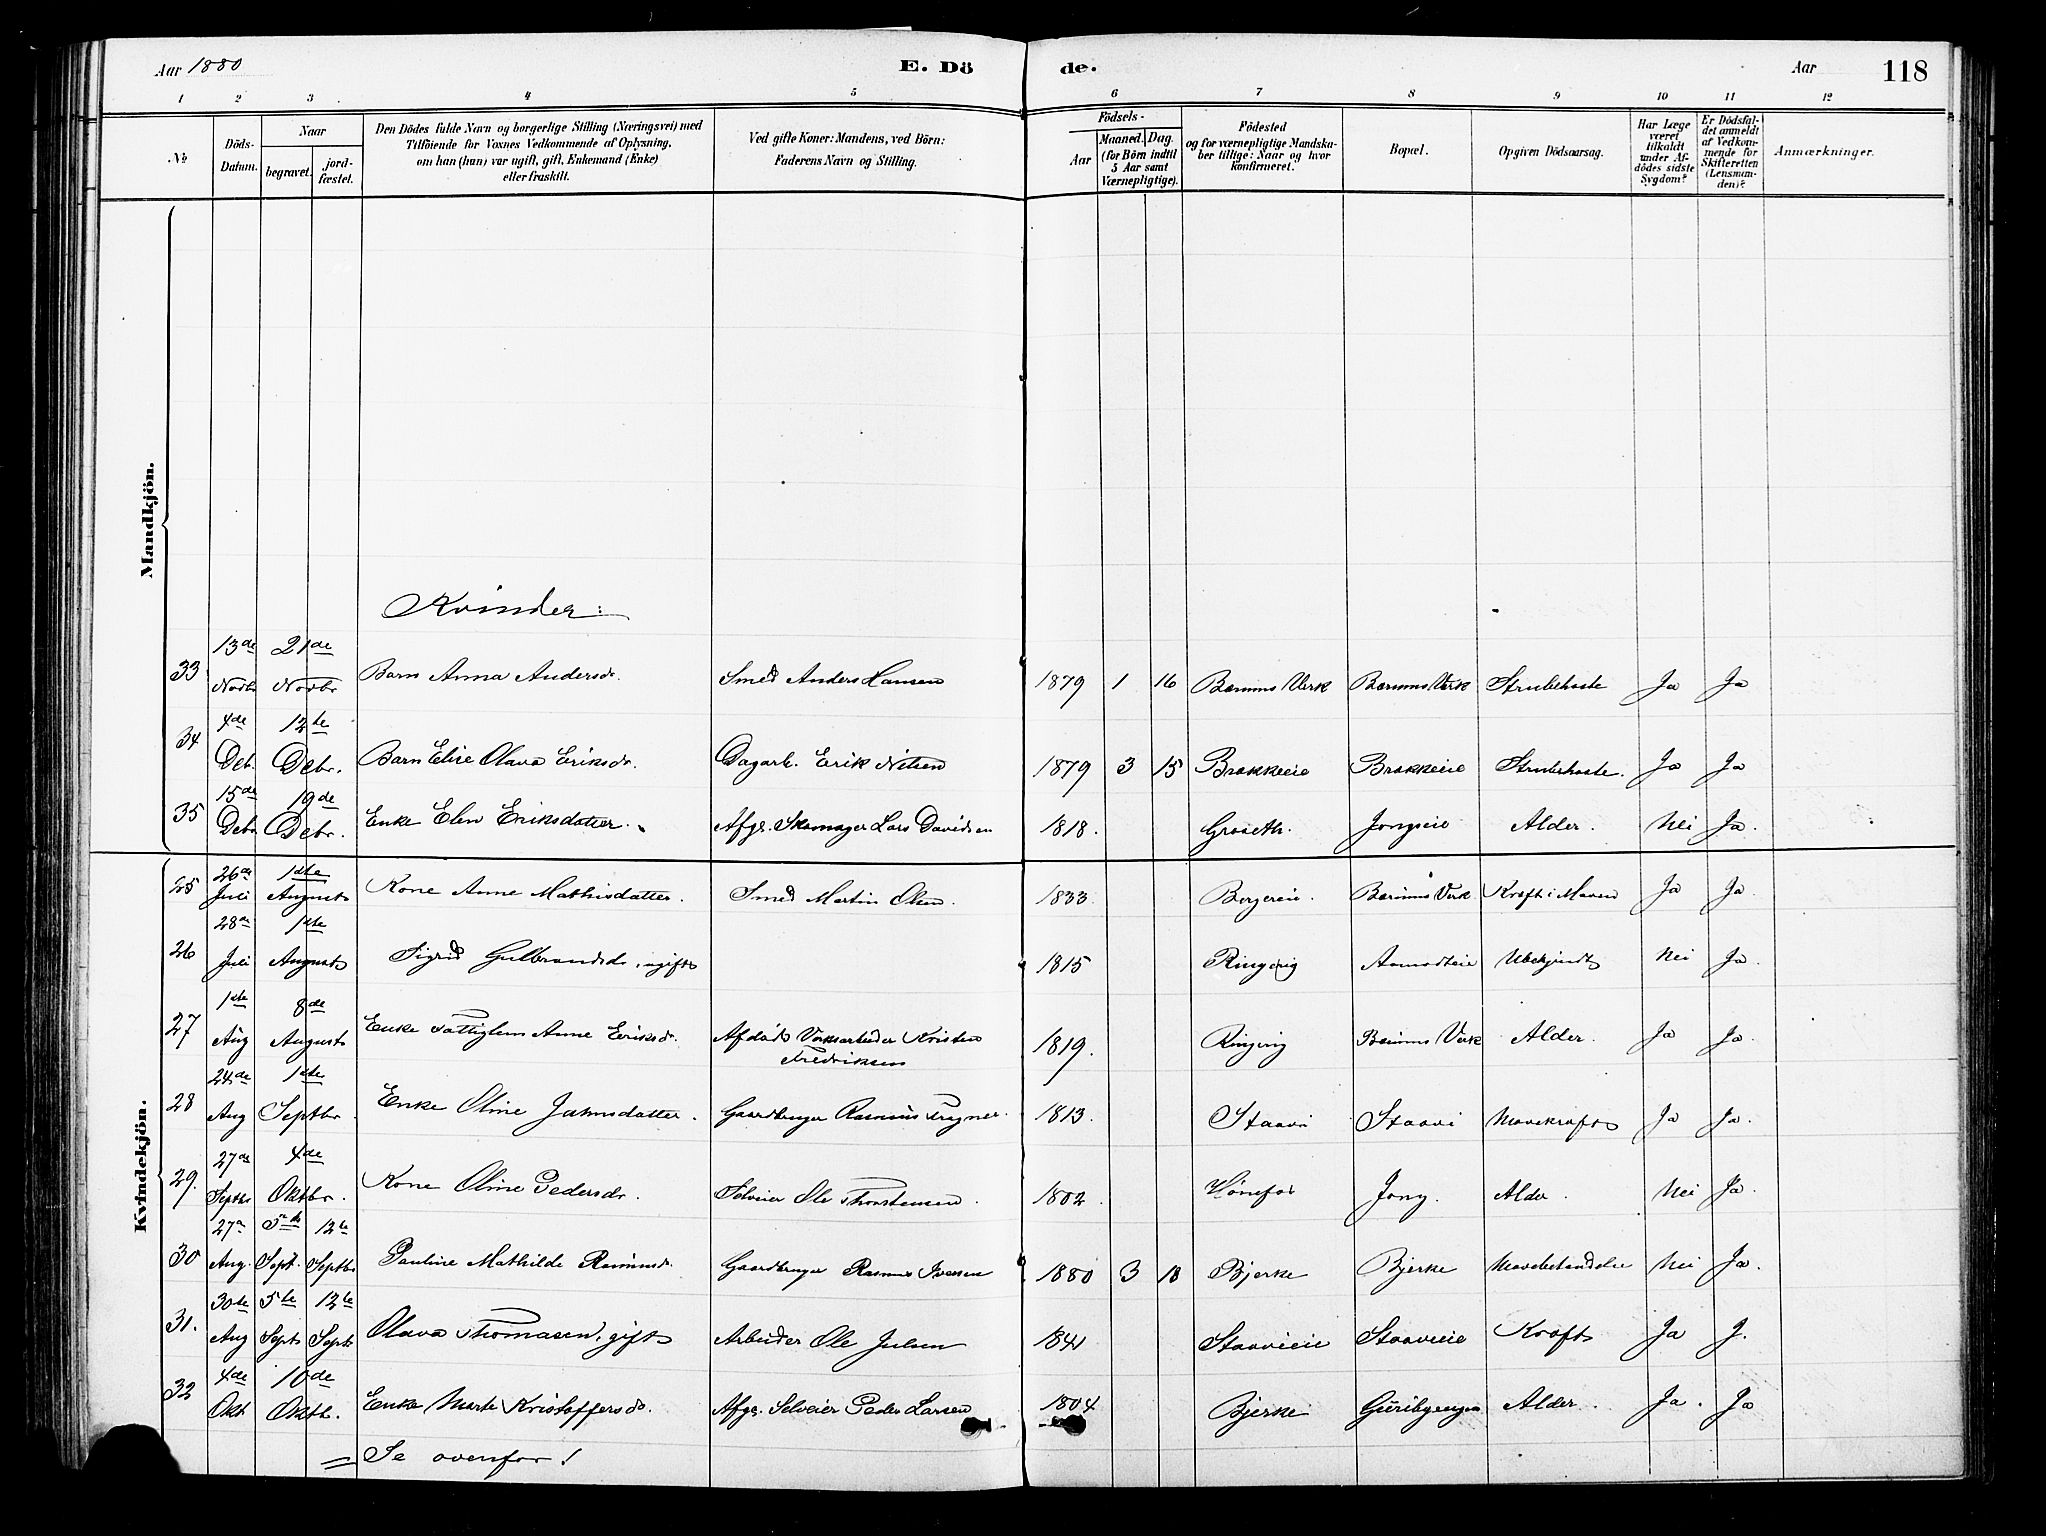 Aar 1880
E. Dö de.
Aar
118
1 2 3 4 5 6 7 8 9 10 11 12
No
Döds-Datum.
Naar
begravet.
jord-fæstet.
Den Dödes fulde Navn og borgerlige Stilling (Næringsvei) med
Tilföiende for Voxnes Vedkommende af Oplysning,
om han (hun) var ugift, gift, Enkemand (Enke)
eller fraskilt.
Ved gifte Koner: Mandens, ved Börn:
Faderens Navn og Stilling.
Födsels-
Aar
Maaned. Dag.
(for Börn indtil
5 Aar samt
Værnepligtige).
Födested
og for værnepligtige Mandska-
ber tillige: Naar og hvor
konfirmeret.
Bopæl.
Opgiven Dödsaarsag.
Har Læge
været
tilkaldt
under Af-
dödes sidste
Sygdom?
Er Dödsfal-
det anmeldt
af Vedkom-
mende for
Skifteretten
(Lensman-
den)?
Anmærkninger.
Mandkjön.
Kvinder:
33 13de Novbr 21de Novbr Barn Anna Andersdr. Smed Anders Hansen 1879 1 16 Bærums Værk Bærums Værk Strubehoste Ja Ja
34 4de Deb. 12te Debr. Barn Elise Olava Eriksdr. Dagarb. Erik Nilsen 1879 3 15 Brakkeeie Brakkeeie Strubehoste. Ja Ja
35 15de Debr 19de Debr. Enke Elen Eriksdatter. Afgr. Skomager Lars Davidsen 1818. Groseth. Jongseie Alder. Nei Ja.
Kvindekjön.
25 26de Juli 1ste August Kone Anne Mathisdatter. Smed Martin Olsen. 1833. Borgereie. Bærums Værk Kræft i Maven Ja Ja.
26 28de Juli 1ste August Sigrid Gulbrandsdr. ugift 1815 Ringerig Ubekjendt Nei Ja.
27 1ste Aug 8de August Enke Fattiglem Anne Eriksdr. Afdöde Værksarbeider Kristen
Fredriksen 1819. Ringerig Bærums Værk Alder. Ja Ja.
28 24de Aug 1ste Septbr. Enke Oline Jahnsdatter. Gaardbruger Rasmus Trygner. 1813. Staavi Staavi Mavekræft Ja Ja.
29. 27de Septbr 4de Oktbr. Kone Oline Pedersdr. Selveier Ole Thorstensen. 1802. Hönefos Jong. Alder Nei Ja.
30 27de Aug. 5te Sept. 12te Septbr Pauline Mathilde Rasmusdr. Gaardbruger Rasmus Iversen 1880 3 18 Bjerke Bjerke Mavebetændelse Nei Ja.
31. 30te Aug 5te Septr 12te Septr Olava Thomasen, gift Arbeider Ole Julsen 1841 Staavieie Staavieie Kræft Ja J.
32 4de Okt 10de Oktb. Enke Marte Kristoffersdr. Afgr. Selveier Peder Larsen 1804 Bjerke Alder. Ja. Ja
= Se ovenfor!